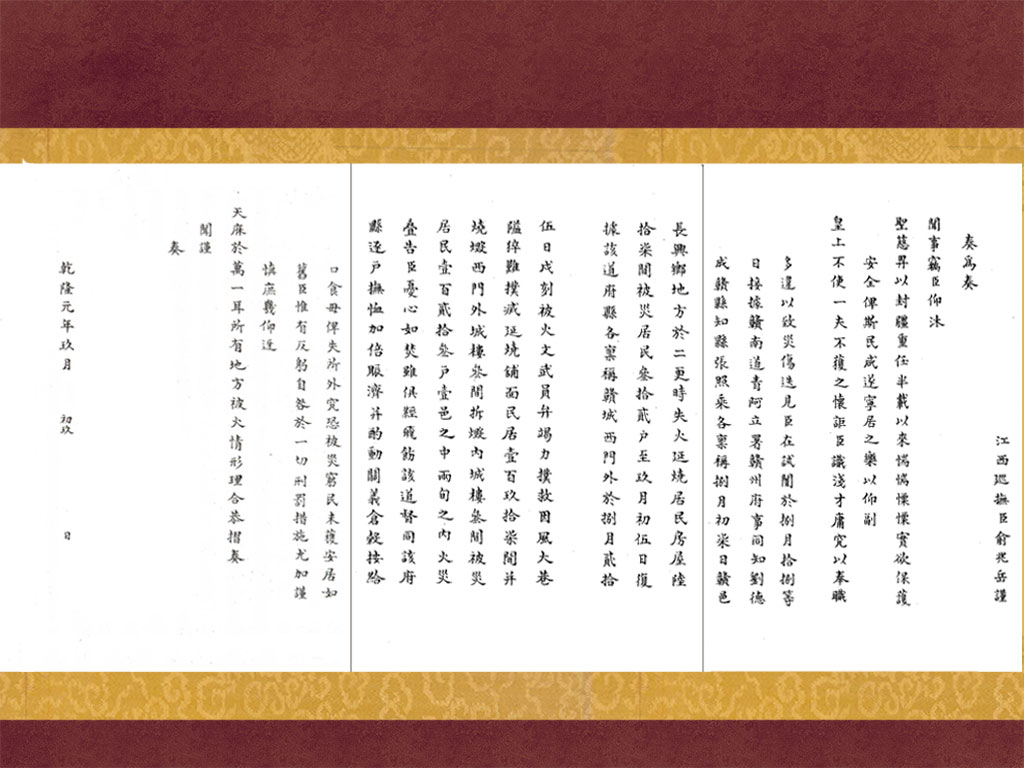 江西巡撫臣俞兆岳謹
奏為奏
聞事竊臣仰沐
聖慈畀以封疆重任半載以來惴惴慄慄實欲保護
安全俾斯民咸遂寧居之樂以仰副
皇上不使一夫不獲之懷詎臣識淺才庸究以奉職
多違以致災傷迭見臣在試闈於捌月拾捌等
日接據贛南道青阿立署贛州府事同知劉德
成贛縣知縣張照乘各稟稱捌月初柒日贛邑
長興鄉地方於二更時失火延燒居民房屋陸
拾柒間被災居民叄拾貳戶至玖月初伍日復
據該道府縣各稟稱贛城西門外於捌月貳拾
伍日戌刻被火文武員弁竭力撲救因風大巷
隘猝難撲滅延燒鋪面民居壹百玖拾柒間并
燒燬西門外城樓叄間折燬內城樓叄間被災
居民壹百貳拾叄戶壹邑之中兩旬之內火災
疊告臣憂心如焚雖俱經飛飭該道督同該府
縣逐戶撫恤加倍賑濟并酌動關義倉穀接給
口食毋俾失所外究恐被災窮民未獲安居如
舊臣惟有反躬自咎於一切刑罰措施尤加謹
慎庶幾仰迓
天庥於萬一耳所有地方被火情形理合恭摺奏
聞謹
奏
乾隆元年玖月 初玖 日